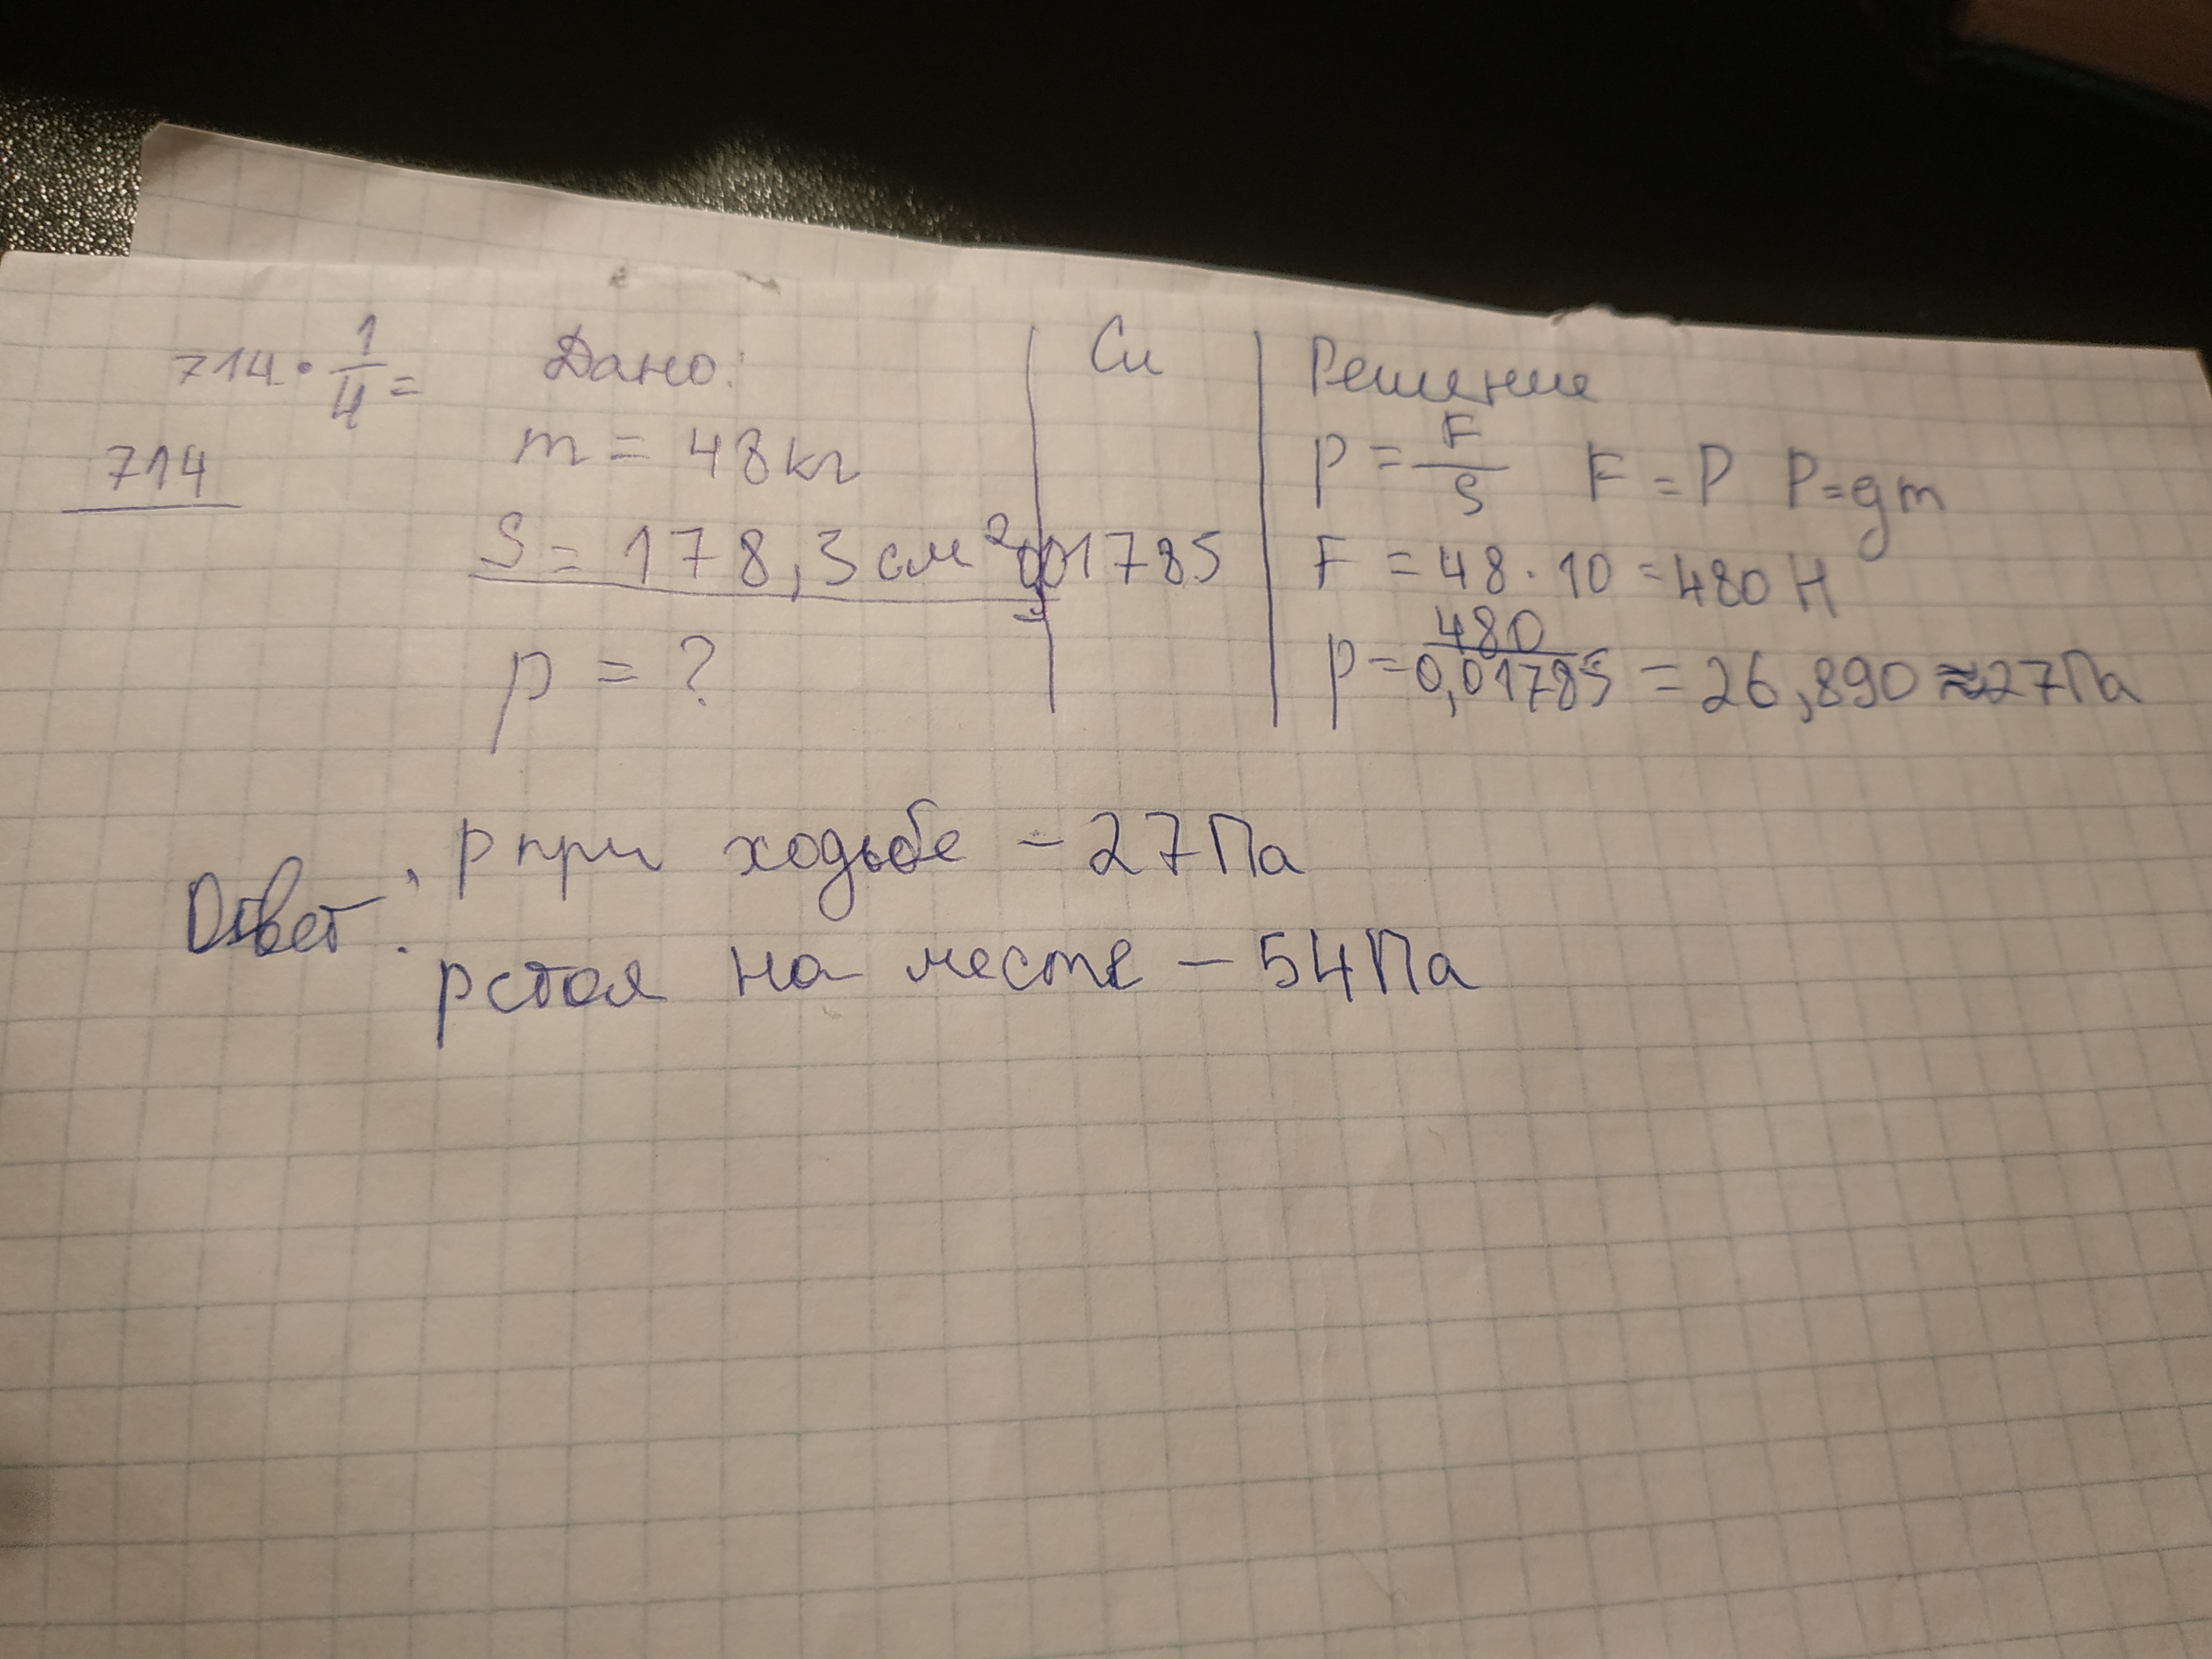 714 · 1/4 =
714
Дано:
m = 48 кг
S = 178,3 см²
p = ?
Си
0,01785
Решение
p = F/S F = P P = gm
F = 48 · 10 = 480 Н
p = 480/0,01785 = 26,890 ≈ 27 Па
Ответ: p при ходьбе – 27 Па
p стоя на месте – 54 Па